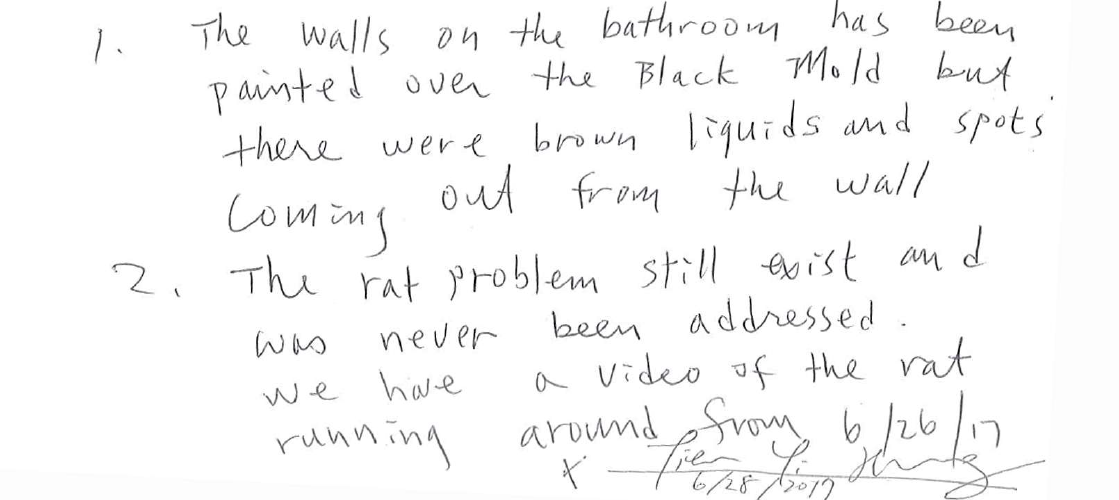 1. The walls on the bathroom has been
painted over the Black Mold but
there were brown liquids and spots
coming out from the wall
2. The rat problem still exist and
was never been addressed.
we have a video of the rat
running around from 6/26/17
x Tien Yi
6/28/2017